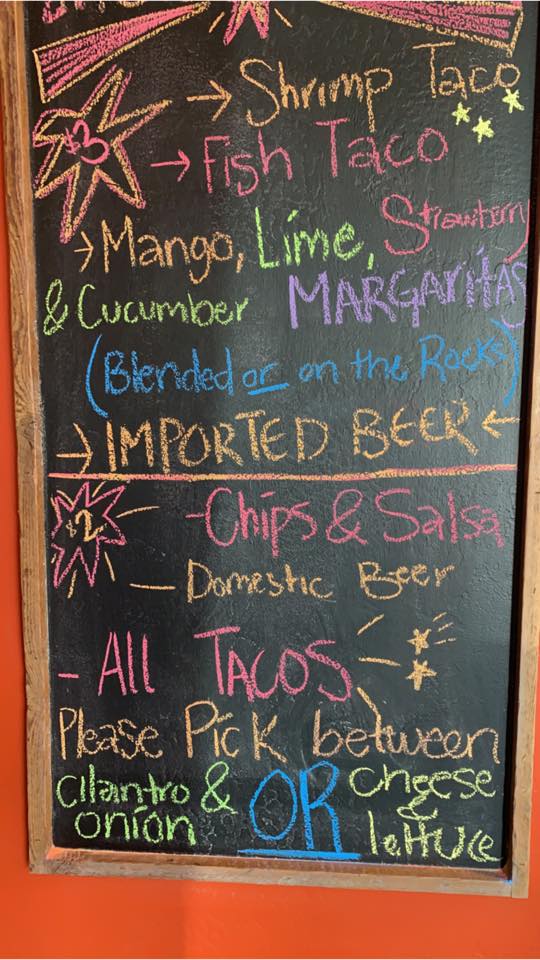 → Shrimp Taco
$3 → Fish Taco
→ Mango, Lime, Strawberry
& Cucumber MARGARITAS
(Blended or on the Rocks)
→ IMPORTED BEER ←
$2 - Chips & Salsa
- Domestic Beer
- All TACOS
Please Pick between
cilantro & onion OR cheese & lettuce